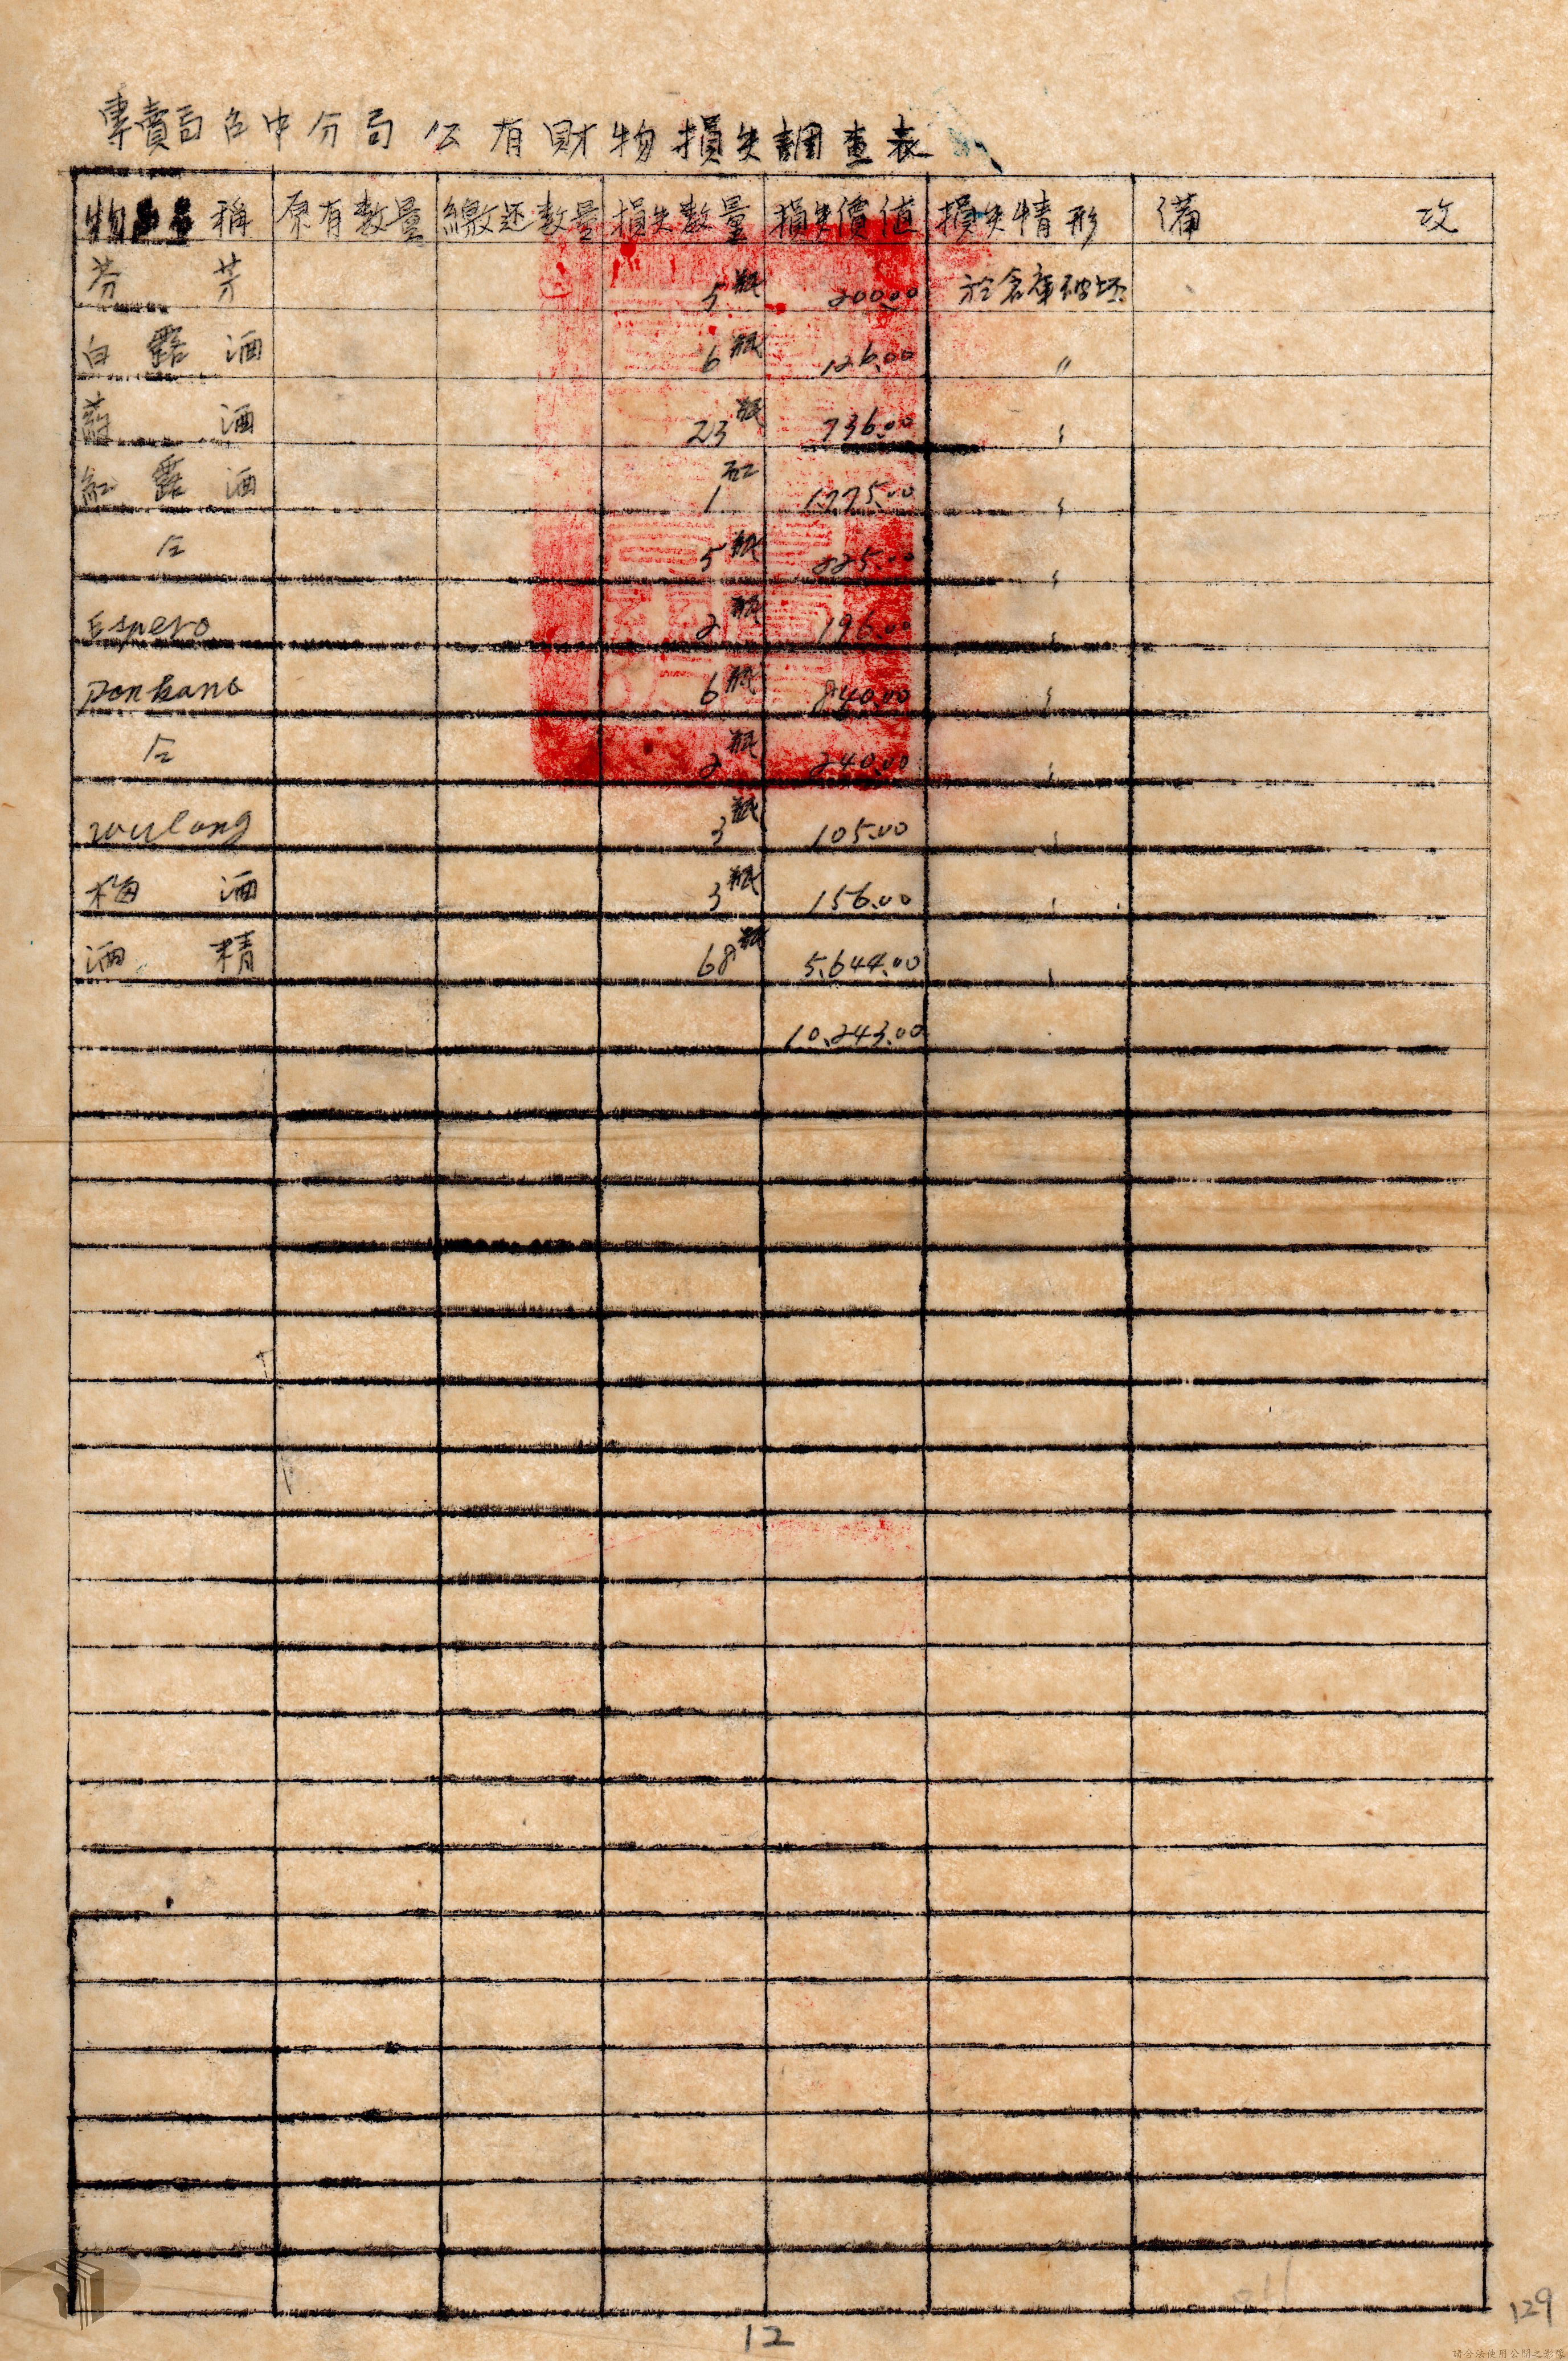 專賣局台中分局公有財物損失調查表
物 稱 原有數量 繳还數量 損失數量 損失價值 損失情形 備 攷
芬芳 5瓶 200.00 於倉庫破坏
白露酒 6瓶 126.00 〃
葯酒 23瓶 736.00 〃
紅露酒 1缸 1,775.00 〃
仝 5瓶 225.00 〃
Espero 2瓶 196.00 〃
Ponkano 6瓶 840.00 〃
仝 2瓶 240.00 〃
woulong 3瓶 105.00 〃
梅酒 3瓶 156.00 〃
酒精 68瓶 5,644.00 〃
10,243.00
12
129
請合法使用公開之影像